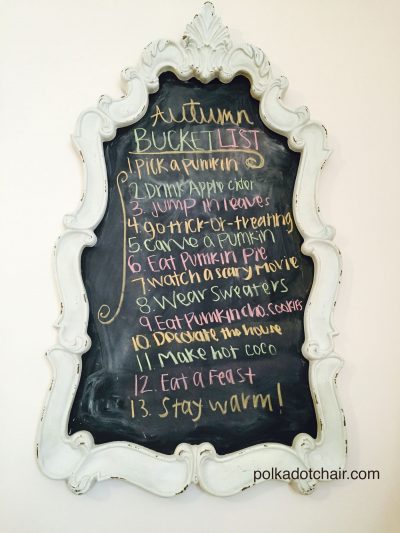 Autumn
BUCKET LIST
1. Pick a Pumkin
2. Drink Apple cider
3. Jump in leaves
4. go trick-or-treating
5 Carve a PumKin
6. Eat Pumkin Pie
7. Watch a scary Movie
8. Wear Sweaters
9 Eat Pumkin cho. cookies
10. Decorate the house
11 Make hot coco
12. Eat a Feast
13. Stay warm!
polkadotchair.com